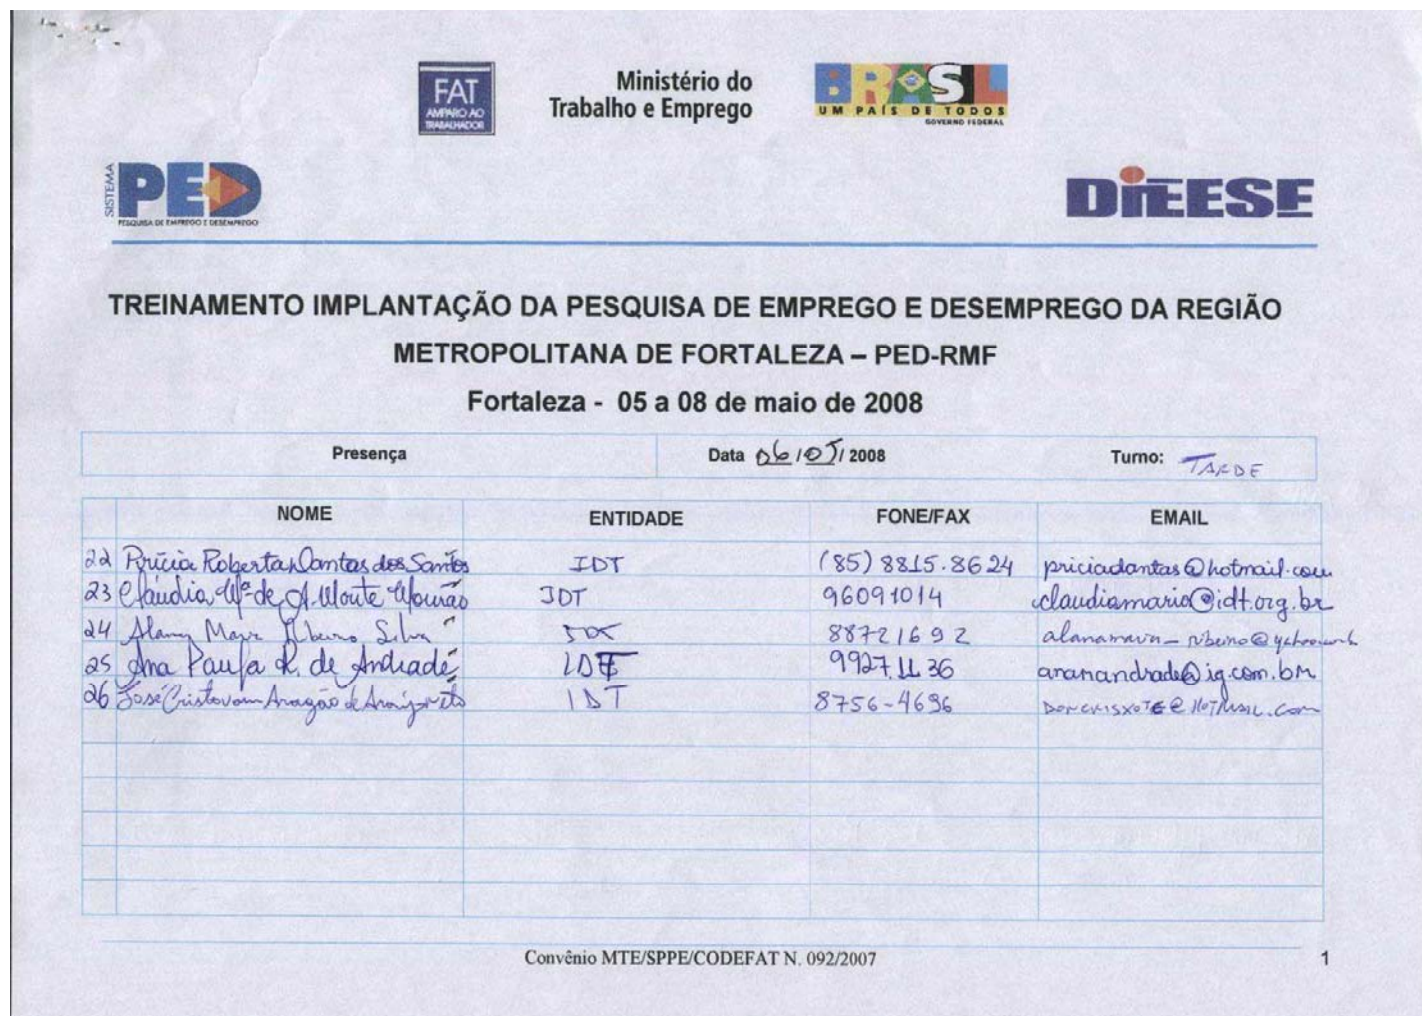 FAT
AMPARO AO
TRABALHADOR
Ministério do
Trabalho e Emprego
BRASIL
UM PAÍS DE TODOS
GOVERNO FEDERAL
SISTEMA
PED
PESQUISA DE EMPREGO E DESEMPREGO
DIEESE
TREINAMENTO IMPLANTAÇÃO DA PESQUISA DE EMPREGO E DESEMPREGO DA REGIÃO
METROPOLITANA DE FORTALEZA – PED-RMF
Fortaleza - 05 a 08 de maio de 2008
Presença Data 06/05/2008 Turno: TARDE
NOME ENTIDADE FONE/FAX EMAIL
22 Prícia Roberta Dantas dos Santos IDT (85) 8815.8624 priciadantas@hotmail.com
23 Cláudia Mª de A. Monte Mourão IDT 96091014 claudiamario@idt.org.br
24 Ribeiro Silva 88721692
25 Ana Paula R. de Andrade IDT 9927.1136
26 José Cristovam Aragão de IDT 8756-4696
Convênio MTE/SPPE/CODEFAT N. 092/2007 1